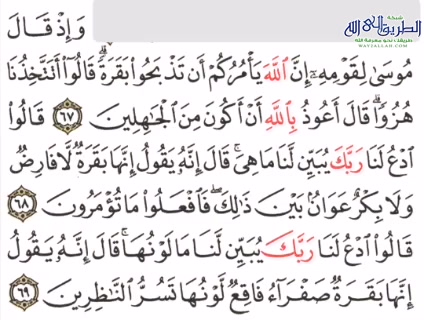 شبكة
الطريق إلى الله
طريقك نحو معرفة الله
WAY2ALLAH.COM
وَإِذْ قَالَ
مُوسَىٰ لِقَوْمِهِۦٓ إِنَّ ٱللَّهَ يَأْمُرُكُمْ أَن تَذْبَحُوا۟ بَقَرَةً ۖ قَالُوٓا۟ أَتَتَّخِذُنَا
هُزُوًا ۖ قَالَ أَعُوذُ بِٱللَّهِ أَنْ أَكُونَ مِنَ ٱلْجَٰهِلِينَ ٦٧ قَالُوا۟
ٱدْعُ لَنَا رَبَّكَ يُبَيِّن لَّنَا مَا هِىَ ۚ قَالَ إِنَّهُۥ يَقُولُ إِنَّهَا بَقَرَةٌ لَّا فَارِضٌ
وَلَا بِكْرٌ عَوَانٌۢ بَيْنَ ذَٰلِكَ ۖ فَٱفْعَلُوا۟ مَا تُؤْمَرُونَ ٦٨
قَالُوا۟ ٱدْعُ لَنَا رَبَّكَ يُبَيِّن لَّنَا مَا لَوْنُهَا ۚ قَالَ إِنَّهُۥ يَقُولُ
إِنَّهَا بَقَرَةٌ صَفْرَآءُ فَاقِعٌ لَّوْنُهَا تَسُرُّ ٱلنَّٰظِرِينَ ٦٩